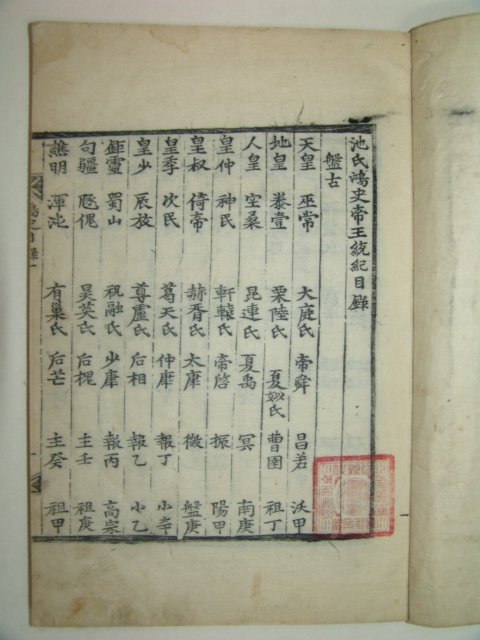 池氏鴻史帝王統紀目錄
盤古
天皇 巫常 大庭氏 帝舜 昌若 沃甲
地皇 泰壹 栗陸氏 夏姒氏 曹圉 祖丁
人皇 空桑 昆連氏 夏禹 冥 南庚
皇仲 神民 軒轅氏 帝啓 振 陽甲
皇叔 倚帝 赫胥氏 太康 微 盤庚
皇季 次民 葛天氏 仲康 報丁 小辛
皇少 辰放 尊盧氏 后相 報乙 小乙
鉅靈 蜀山 祝融氏 少康 報丙 高宗
句疆 豗傀 昊英氏 后槐 主壬 祖庚
譙明 渾沌 有巢氏 后芒 主癸 祖甲